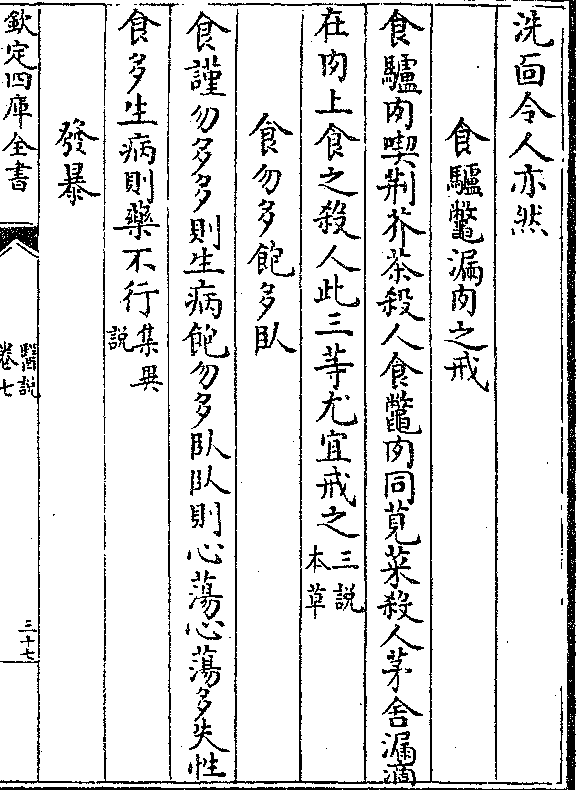 洗面令人亦然
食驢鼈漏肉之戒
食驢肉喫荆芥茶殺人食鼈肉同莧菜殺人茅舍漏滴
在肉上食之殺人此三等尤宜戒之三説本草
食勿多飽多臥
食謹勿多多則生病飽勿多臥臥則心蕩心蕩多失性
食多生病則藥不行集異説
發暴
欽定四庫全書
醫説
卷七
三十七